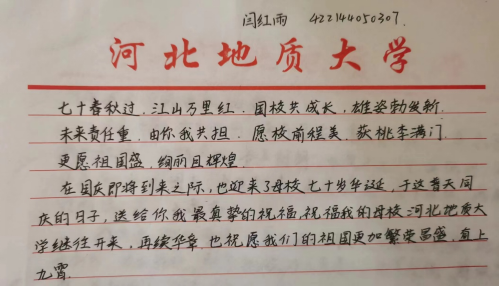 闫红雨 422144050307.
河北地质大学
七十春秋过,江山万里红.国校共成长,雄姿勃发新.
未来责任重.由你我共担.愿校前程美.荻桃李满门.
更愿祖国盛.绚丽且辉煌.
在国庆即将到来之际,也迎来了母校七十岁华诞,于这普天同
庆的日子,送给你我最真挚的祝福,祝福我的母校:河北地质大
学继往开来,再续华章.也祝愿我们的祖国更加繁荣昌盛.直上
九霄.